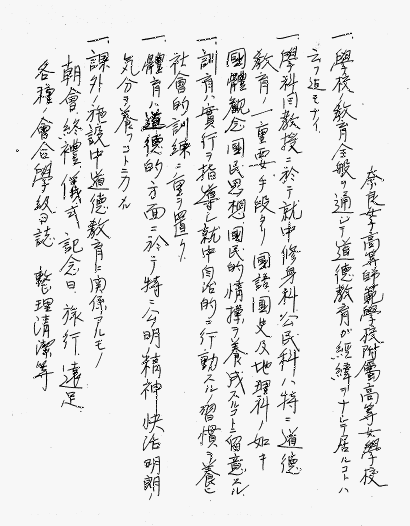 奈良女子高等師範學校附屬高等女學校
一、學校教育全般ヲ通ジテ道德教育ガ經緯ヲナシテ居ルコトハ
云フ迄モナイ
一、學科目教授ニ於テ就中修身科公民科ハ特ニ道德
教育ノ一重要手段ナリ國語國史及地理科ノ如キ
國體觀念、國民思想、國民的情操ヲ養成スルコトニ留意スル
一、訓育ハ實行ヲ指導シ就中自治的ニ行動スルノ習慣ヲ養ヒ
社會的訓練ニ重ヲ置ク
一、體育ハ道德的方面ニ於テ特ニ公明ノ精神快活明朗ノ
気分ヲ養フコトニ力ム
一、課外ノ施設中道德教育ニ関係アルモノ
朝會、終禮、儀式、記念日、旅行、遠足
各種ノ會合學級日誌 整理清潔等